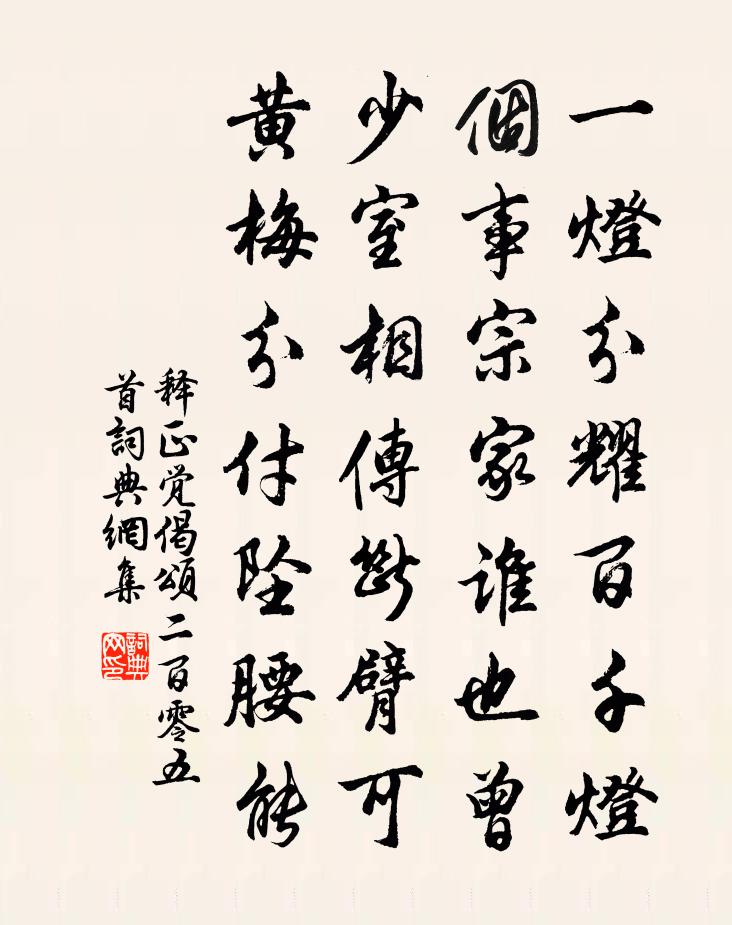 一燈分耀百千燈
個事宗家誰也曾
少室相傳斷臂可
黃梅分付坠腰能
释正觉偈頌二百零五
首詞典網集
詞典网印